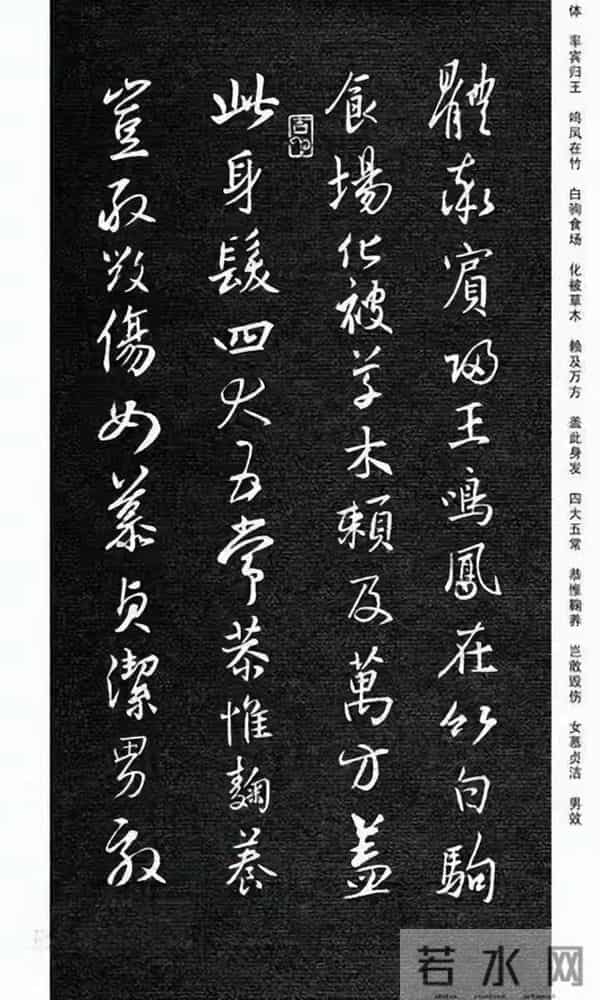 体 率宾归王 鸣凤在竹 白驹食场 化被草木 赖及万方 盖此身发 四大五常 恭惟鞠养 岂敢毁伤 女慕贞洁 男效
體率賓歸王鳴鳳在竹白駒
食場化被草木賴及萬方蓋
此身髮四大五常恭惟鞠養
豈敢毀傷女慕貞潔男效
若水网